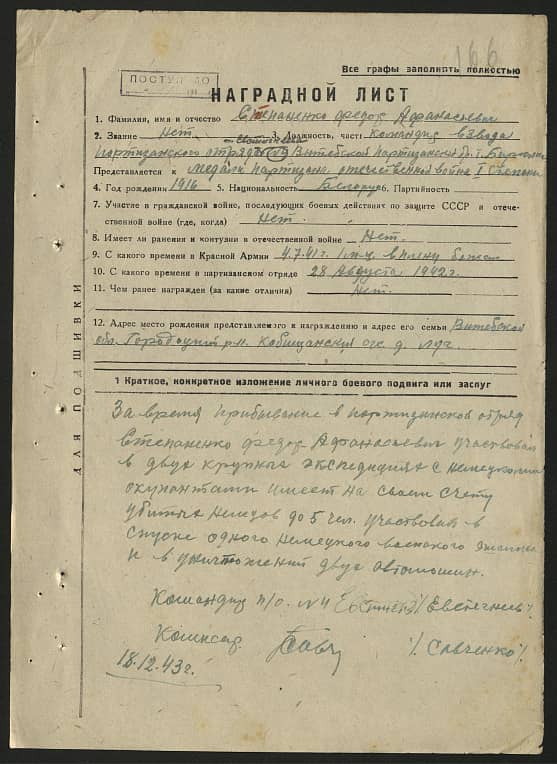 166
Все графы заполнять полностью
ПОСТУПИЛО
НАГРАДНОЙ ЛИСТ
1. Фамилия, имя и отчество Степаненко Федор Афанасьевич
2. Звание Нет. 3. Должность, часть командир взвода
партизанского отряда Витебской партизанской бр.
Представляется к медали партизана отечественной войны I Степени
4. Год рождения 1916 5. Национальность Белорус 6. Партийность
7. Участие в гражданской войне, последующих боевых действиях по защите СССР и отече-
ственной войне (где, когда) Нет.
8. Имеет ли ранения и контузии в отечественной войне Нет.
9. С какого времени в Красной Армии 4.7.41г. 1 м-ц. в плену бежал
10. С какого времени в партизанском отряде 28 Августа 1942г.
11. Чем ранее награжден (за какие отличия) Нет.
12. Адрес место рождения представляемого к награждению и адрес его семьи Витебской
обл. Городоцкий р-н. Кабищанский с/с. д. Луг.
ДЛЯ ПОДШИВКИ
1 Краткое, конкретное изложение личного боевого подвига или заслуг
За время прибывание в партизанской отряд
Степаненко Федор Афанасьевич участвовал
в двух крупных экспедициях с немецкими
окупантами имеет на своем счету
убитых немцов до 5 чел. участвовал в
спуске одного немецкого воинского эшалона
и в уничтожений двух автомошин.
Командир п/о. №4 /Евстегнеев/
Комисар /Савченко/.
18.12.43г.